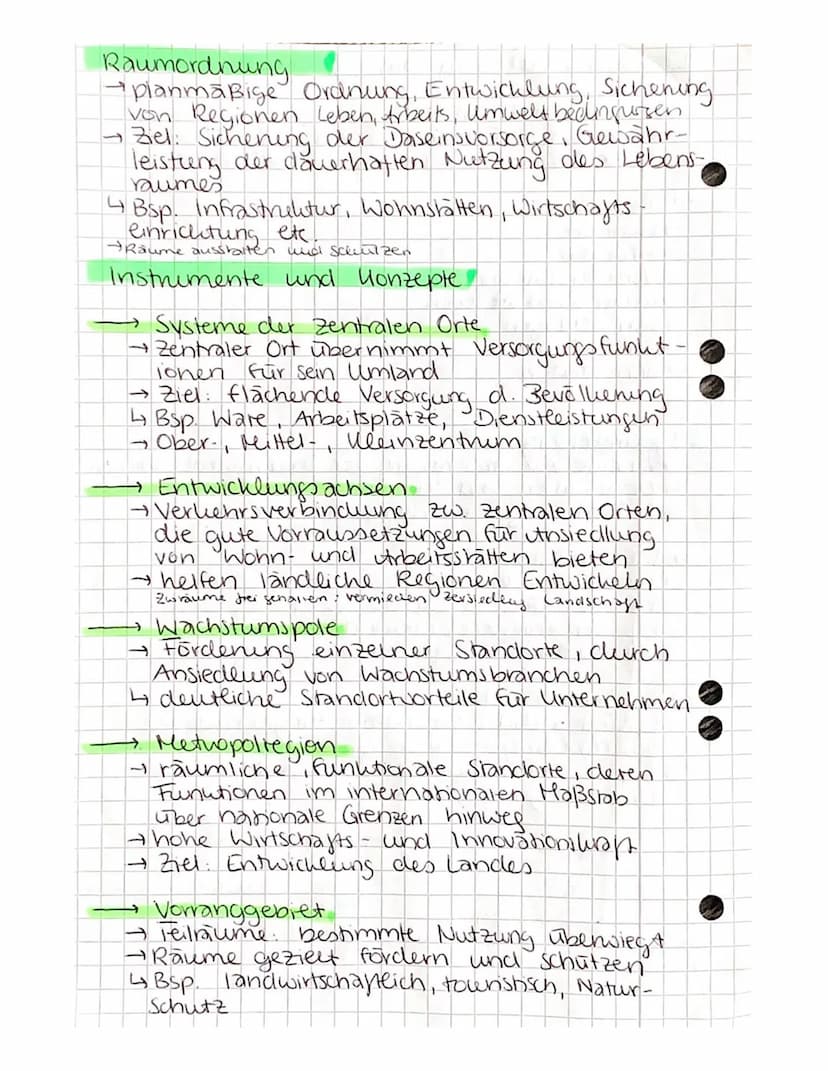 Raumordnung
→ planmäßige Ordnung, Entwicklung, Sicherung
von Regionen Leben, Arbeits, Umweltbedingungen
→ Ziel: Sicherung der Daseinsvorsorge, Gewähr-
leistung der dauerhaften Nutzung des Lebens-
raumes
↳ Bsp. Infrastruktur, Wohnstätten, Wirtschafts-
einrichtung etc.
→ Räume ausstatten und schützen
Instrumente und Konzepte
→ Systeme der zentralen Orte
→ zentraler Ort übernimmt Versorgungsfunkt-
ionen für sein Umland
→ Ziel: flächende Versorgung d. Bevölkerung
↳ Bsp. Ware, Arbeitsplätze, Dienstleistungen
→ Ober-, Mittel-, Kleinzentrum
→ Entwicklungsachsen
→ Verkehrsverbindung zw. zentralen Orten,
die gute Vorraussetzungen für Ansiedlung
von Wohn- und Arbeitsstätten bieten
→ helfen ländliche Regionen Entwickeln
frei vermieden Landschaft
→ Wachstumspole
→ Förderung einzelner Standorte, durch
Ansiedlung von Wachstumsbranchen
↳ deutliche Standortvorteile für Unternehmen
→ Metropolregion
→ räumliche, funktionale Standorte, deren
Funktionen im internationalen Maßstab
über nationale Grenzen hinweg
→ hohe Wirtschafts- und Innovationskraft
→ Ziel: Entwicklung des Landes
→ Vorranggebiet
→ Teilräume: bestimmte Nutzung überwiegt
→ Räume gezielt fördern und schützen
↳ Bsp. landwirtschaftlich, touristisch, Natur-
schutz